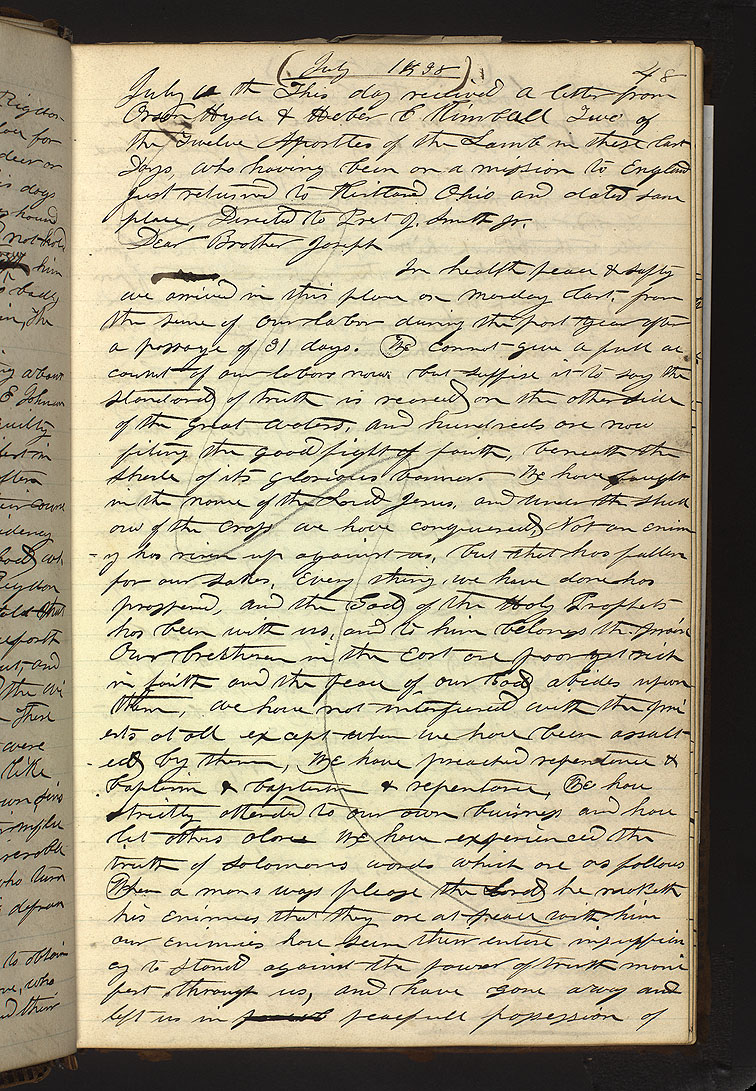 ( July 1838 )
48
July 6th This day received a letter from
Orson Hyde & Heber C Kimball Two of
the Twelve Apostles of the Lamb in these last
Days, who having been on a mission to England
just returned to Kirtland Ohio and dated same
place, Directed to Prest J. Smith Jr.
Dear Brother Joseph
In health peace & safty
we arrived in this place on Monday last, from
the scene of our labor during the past year after
a passage of 31 days. We cannot give a full ac
count of our labors now. but suffise it to say the
standard of truth is reared on the other side
of the great waters, and hundreds are now
fiting the good fight of faith, beneath the
shade of its glorious banner. We have fought
in the name of the Lord Jesus, and under the shad
ow of the cross we have conquered, Not an enim
y has risen up against us, but that has fallen
for our sakes, Every thing we have done has
prospered, and the God of the Holy Prophets
has been with us, and to him belongs the praise
Our bretheren in the East are poor yet rich
in faith and the peace of our God abides upon
them, we have not interfeered with the pri
ests at all except when we have been assalt
ed by them, We have preached repentance &
baptism & baptism & repentance, We have
strictly attended to our own buisness and have
let others alone We have experienced the
truth of Solomons words which are as follows
When a mans ways please the Lord he maketh
his enimies that they are at peace with him
our enimies have seen their entire insuffien
cy to stand against the power of truth mani
fest through us, and have gone away and
left us in peacefull possession of
Rigdon
deer or
days
hound
him
in, The
E Johnson
guilty
Rigdon
and
There
were
like
who turn
to obtain
who